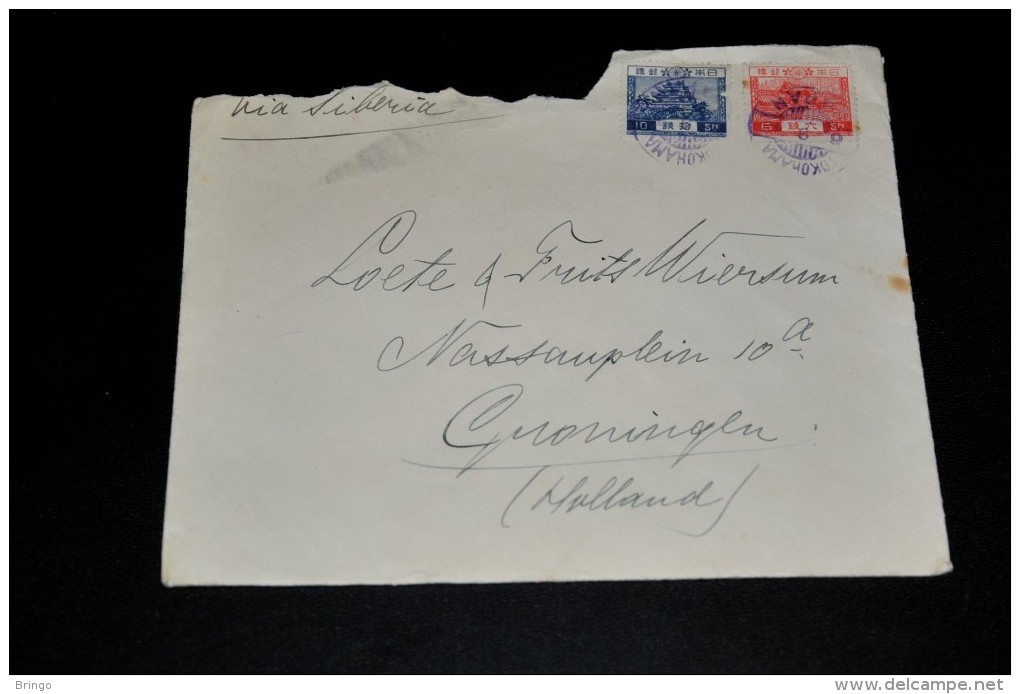 via Siberia
日本郵便
10 拾銭 Sn
日本郵便
6 六銭 Sn
YOKOHAMA
YOKOHAMA
JAPAN
Loete & Frits Wiersum
Nassauplein 10a
Groningen
(Holland)
Bringo
delcampe.net